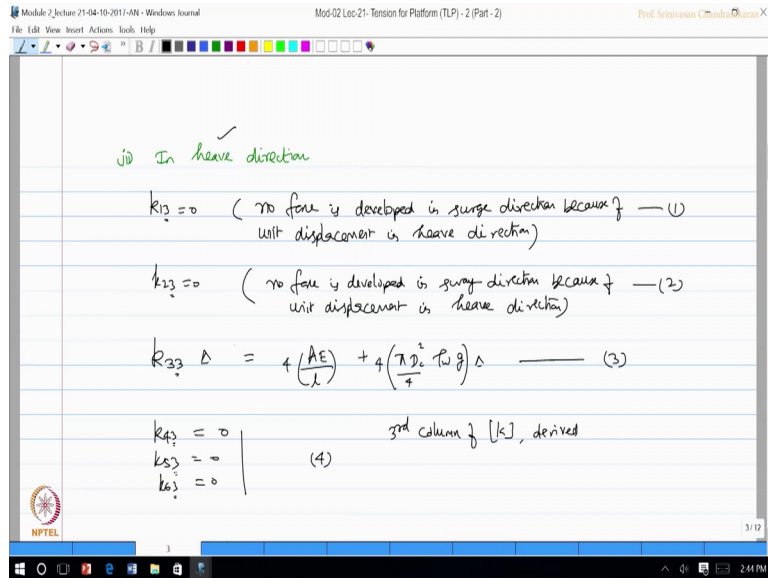 Module 2_lecture 21-04-10-2017-AN - Windows Journal
Mod-02 Lec-21- Tension for Platform (TLP) - 2 (Part - 2)
Prof. Srinivasan Chandrasekaran
File Edit View Insert Actions Tools Help
ii) In heave direction
k13 = 0 ( no force is developed in surge direction because of — (1)
unit displacement in heave direction)
k23 = 0 ( no force is developed in sway direction because of — (2)
unit displacement in heave direction)
k33 Δ = 4 (AE/l) + 4 (πDc²/4 ρw g) Δ — (3)
k43 = 0 3rd column of [k], derived
k53 = 0 (4)
k63 = 0
NPTEL
3/12
3
2:44 PM